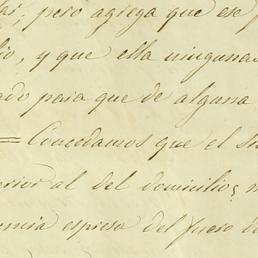 pero agrega que ese
y que ella ninguna
para que de alguna
= Concedamos que el
al del domicilio;
espresa del fuero